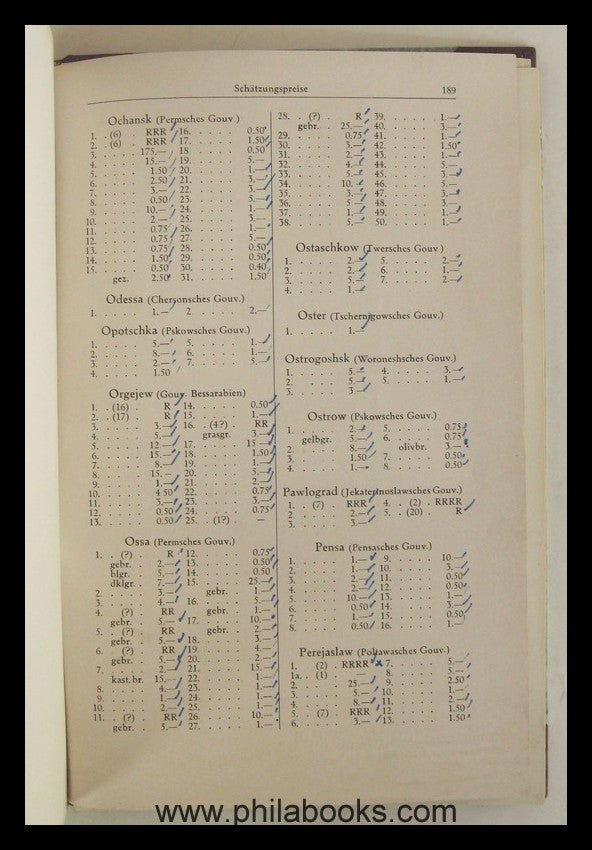 Schätzungspreise 189
Ochansk (Permsches Gouv.)
1. . (6) RRR 16. . . . . 0.50
2. . (6) RRR 17. . . . . 1.50
3. . . . . 175.— 18 . . . . 0.50
4. . . . . 15.— 19. . . . . 5.—
5. . . . . 1.50 20. . . . . 1.—
6. . . . . 2.50 21. . . . . 3.—
7. . . . . 3.— 22. . . . . 3.—
8. . . . . 0.50 23. . . . . 5.—
9. . . . . 10.— 24. . . . . 1.—
10. . . . . 2.— 25. . . . . 3.—
11. . . . . 0.75 26. . . . . 1.—
12. . . . . 0.75 27. . . . . 5.—
13. . . . . 0.75 28. . . . . 0.50
14. . . . . 1.50 29. . . . . 0.50
15. . . . . 0.50 30. . . . . 0.40
gez. 2.50 31. . . . . 1.50
Odessa (Chersonsches Gouv.)
1. . . . . 1.— 2. . . . . 2.—
Opotschka (Pskowsches Gouv.)
1. . . . . 5.— 5. . . . . 1.—
2. . . . . 8.— 6. . . . . 1.—
3. . . . . 2.— 7. . . . . 5.—
4. . . . . 1.50
Orgejew (Gouv. Bessarabien)
1. . (16) . R 14. . . . . 0.50
2. . (17) . R 15. . . . . 1.—
3. . . . . 3.— 16. . (4?) . RR
4. . . . . 5.— grasgr. 3.—
5. . . . . 12.— 17. . . . . 15.—
6. . . . . 15.— 18. . . . . 1.50
7. . . . . 8.— 19. . . . . 1.—
8. . . . . 15.— 20. . . . . 5.—
9. . . . . 1.— 21. . . . . 2.—
10. . . . . 4 50 22. . . . . 0.75
11. . . . . 3.— 23. . . . . 3.—
12. . . . . 0.50 24. . . . . 0.75
13. . . . . 0.50 25. . (1?) . —
Ossa (Permsches Gouv.)
1. . (?) . R 12. . . . . 0.75
gebr. . 2.— 13. . . . . 0.50
blgr. . 5.— 14. . . . . 0.50
dklgr. . 7.— 15. . . . . 25.—
2. . . . . 3.— gebr. . 1.—
3. . . . . 4.— 16. . . . . 5.—
4. . (?) RR gebr. . 1.—
gebr. . 5.— 17. . . . . 10.—
5. . (?) . RR gebr. . 2.—
gebr. . 5.— 18. . . . . 3.—
6. . (?) RR 19. . . . . 4.—
gebr. . 5.— 20. . . . . 2.—
7. . . . . 2.— 21. . . . . 15.—
kast. br. 15.— 22. . . . . 1.—
8. . . . . 4.— 23. . . . . 1.—
9. . . . . 1.— 24. . . . . 1.—
10. . . . . 2.— 25. . . . . 1.—
11. . (?) . RR 26. . . . . 10.—
gebr. 5.— 27. . . . . 1.—
28. . (?) R 39. . . . . 1.—
gebr. . 25.— 40. . . . . 3.—
29. . . . . 0.75 41. . . . . 1.—
30. . . . . 3.— 42. . . . . 1.50
31. . . . . 2.— 43. . . . . 1.—
32. . . . . 4.— 44. . . . . 5.—
33. . . . . 5.— 45. . . . . 3.—
34. . . . . 10. 46. . . . . 5.—
35. . . . . 3.— 47. . . . . 3.—
36. . . . . 5 48. . . . . 3.—
37. . . . . 1.— 49. . . . . 1.—
38. . . . . 5.— 50. . . . . 1.—
Ostaschkow (Twersches Gouv )
1. . . . . 2.— 5. . . . . 2.—
2. . . . . 2.— 6. . . . . 1.—
3. . . . . 5.— 7. . . . . 2.—
4. . . . . 1.—
Oster (Tschernigowsches Gouv.)
1. . . . . 1.—
Ostrogoshsk (Woroneshsches Gouv.)
1. . . . . 5.— 4. . . . . 3.—
2. . . . . 5.— 5. . . . . 1.—
3. . . . . 3.—
Ostrow (Pskowsches Gouv.)
1. . . . . 2.— 5. . . . . 0.75
gelbgr. . 5.— 6. . . . . 0.75
2. . . . . 8.— olivbr. 3.—
3. . . . . 1.50 7. . . . . 0.50
4. . . . . 1.— 8. . . . . 0.50
Pawlograd (Jekaterinoslawsches Gouv.)
1. . (7) . RRR 4. . (2) . RRRR
2 . . . . 2.— 5. . (20) . R
3. . . . . 3.—
Pensa (Pensasches Gouv.)
1. . . . . 1.— 9. . . . . 10.—
2. . . . . 1.— 10. . . . . 3.—
3. . . . . 2.— 11. . . . . 0.50
4. . . . . 2.— 12. . . . . 0.50
5. . . . . 10.— 13. . . . . 1.—
6. . . . . 0.50 14. . . . . 3.—
7. . . . . 1.— 15. . . . . 0.50
8. . . . . 0.50 16. . . . . 1.—
Perejaslaw (Poltawasches Gouv.)
1. (2) . RRRR 7. . . . . 5.—
1a. . (1) . — 8. . . . . 5.—
2. . . . . 25.— 9. . . . . 2.50
3. . . . . 5.— 10. . . . . 1.—
4. . . . . 8.— 11. . . . . 2.—
5. . (7) RRR 12. . . . . 1.50
6. . . . . 3.— 13. . . . . 1.50
www.philabooks.com